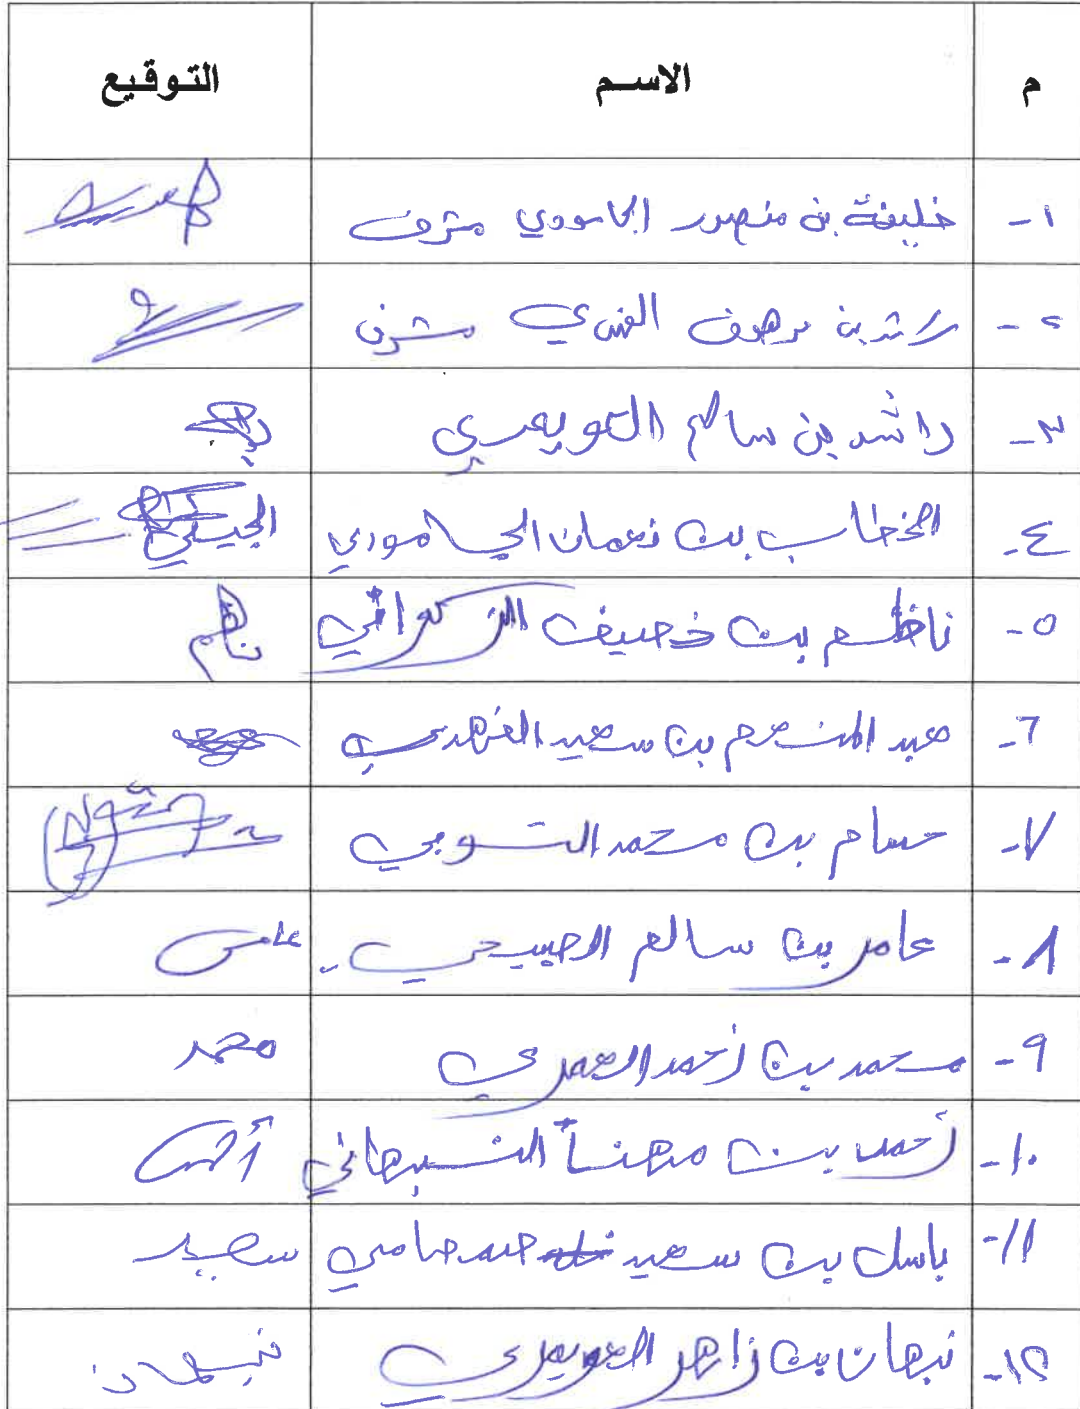 م الاسم التوقيع
١- خليفة بن منصور الجامودي مشرف
٢- راشد بن مرهون الفهدي مشرف
٣- راشد بن سالم العويمري
٤- الخطاب بن نعمان الجامودي
٥- ناظم بن خصيف الزكواني ناظم
٦- عبد المنعم بن سعيد الفهدي
٧- حسام بن محمد التوبي
٨- عامر بن سالم الرحيبي عامر
٩- محمد بن أحمد العمري محمد
١٠- أحمد بن مهنأ النبهاني أحمد
١١- باسل بن سعيد سعيد
١٢- نبهان بن زاهر العويمري نبهان